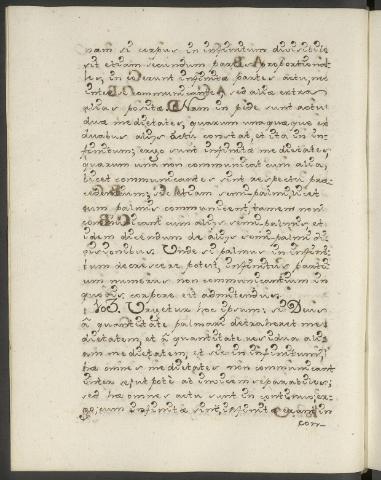 nam si corpus in infinitum divisibile
sit etiam secundum partes proportiona-
les, in eo erunt infinitæ partes actu, nec
inter se communicantes, sed aliæ extra
alias positæ. Nam in pede sunt actu
duæ medietates, quarum una quæque ex
duabus aliis actu constat, et ita in in-
finitum; ergo sunt infinitæ medietates,
quarum una non communicat cum alia,
licet communicantes sint respectu
etiam semi-palmi, licet
cum palmis communicent, tamen non
communicant cum aliis semi-palmis, et
idem dicendum de aliis semi-palmi di-
visionibus. Unde si palmus in infini-
tum decrescere potest, infinitus parti-
um numerus non communicantium in
quovis corpore est admittendus.
103. Urgetur hoc ipsum: si Deus
à quantitate palmari detraheret me-
dietatem, et à quantitate residua ali-
am medietatem, et sic in infinitum;
hæ omnes medietates non communicant
inter se, utpote ab invicem separabiles;
sed hæ omnes actu sunt in continuo; er-
go, cum infinitæ sint, infinitæ erunt in
com-